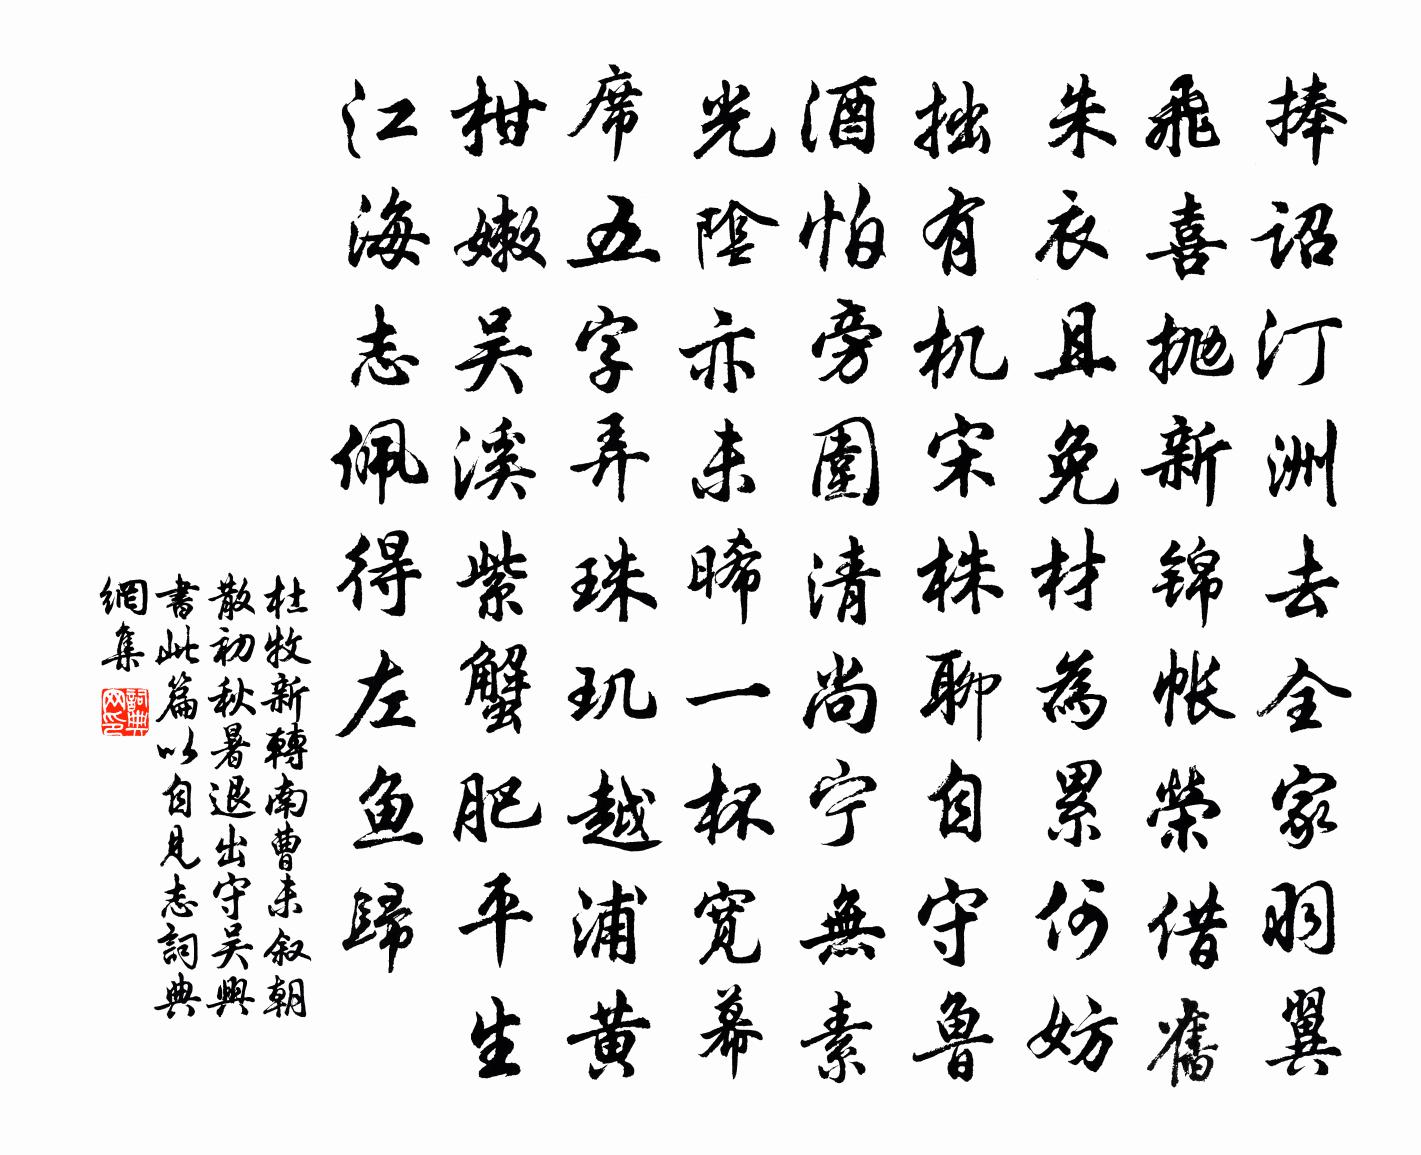 捧詔汀洲去全家羽翼
飛喜抛新锦帐榮借舊
朱衣且免材為累何妨
拙有机宋株聊自守魯
酒怕旁圍清尚宁無素
光陰亦未晞一杯宽幕
席五字弄珠玑越浦黄
柑嫩吴溪紫蟹肥平生
江海志佩得左鱼歸
杜牧新轉南曹未叙朝
散初秋暑退出守吴興
書此篇以自見志詞典
網集